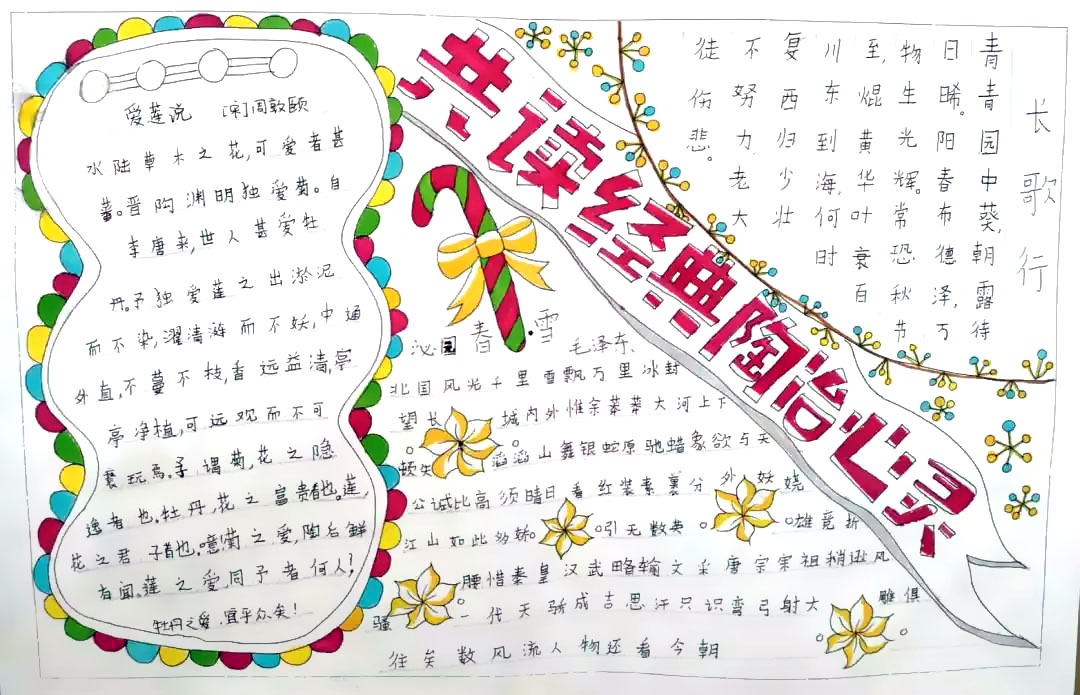 共读经典陶冶心灵
爱莲说 [宋]周敦颐
水陆草木之花,可爱者甚
蕃。晋陶渊明独爱菊。自
李唐来,世人甚爱牡
丹。予独爱莲之出淤泥
而不染,濯清涟而不妖,中通
外直,不蔓不枝,香远益清,亭
亭净植,可远观而不可
亵玩焉。予谓菊,花之隐
逸者也。牡丹,花之富贵者也。莲,
花之君子者也。噫菊之爱,陶后鲜
有闻。莲之爱,同予者何人!
牡丹之爱,宜乎众矣!
沁园春·雪
毛泽东
北国风光千里雪飘万里冰封
望长城内外惟余莽莽大河上下
顿失滔滔山舞银蛇原驰蜡象欲与天
公诚比高须晴日看红装素裹分外妖娆
江山如此多娇引无数英雄竟折
腰惜秦皇汉武略输文采唐宗宋祖稍逊风
骚一代天骄成吉思汗只识弯弓射大雕俱
往矣数风流人物还看今朝
长歌行
青青园中葵,朝露待
日晞。阳春布德泽,万
物生光辉。常恐秋节
至,焜黄华叶衰百
川东到海,何时
复西归少壮
不努力老大
徒伤悲。